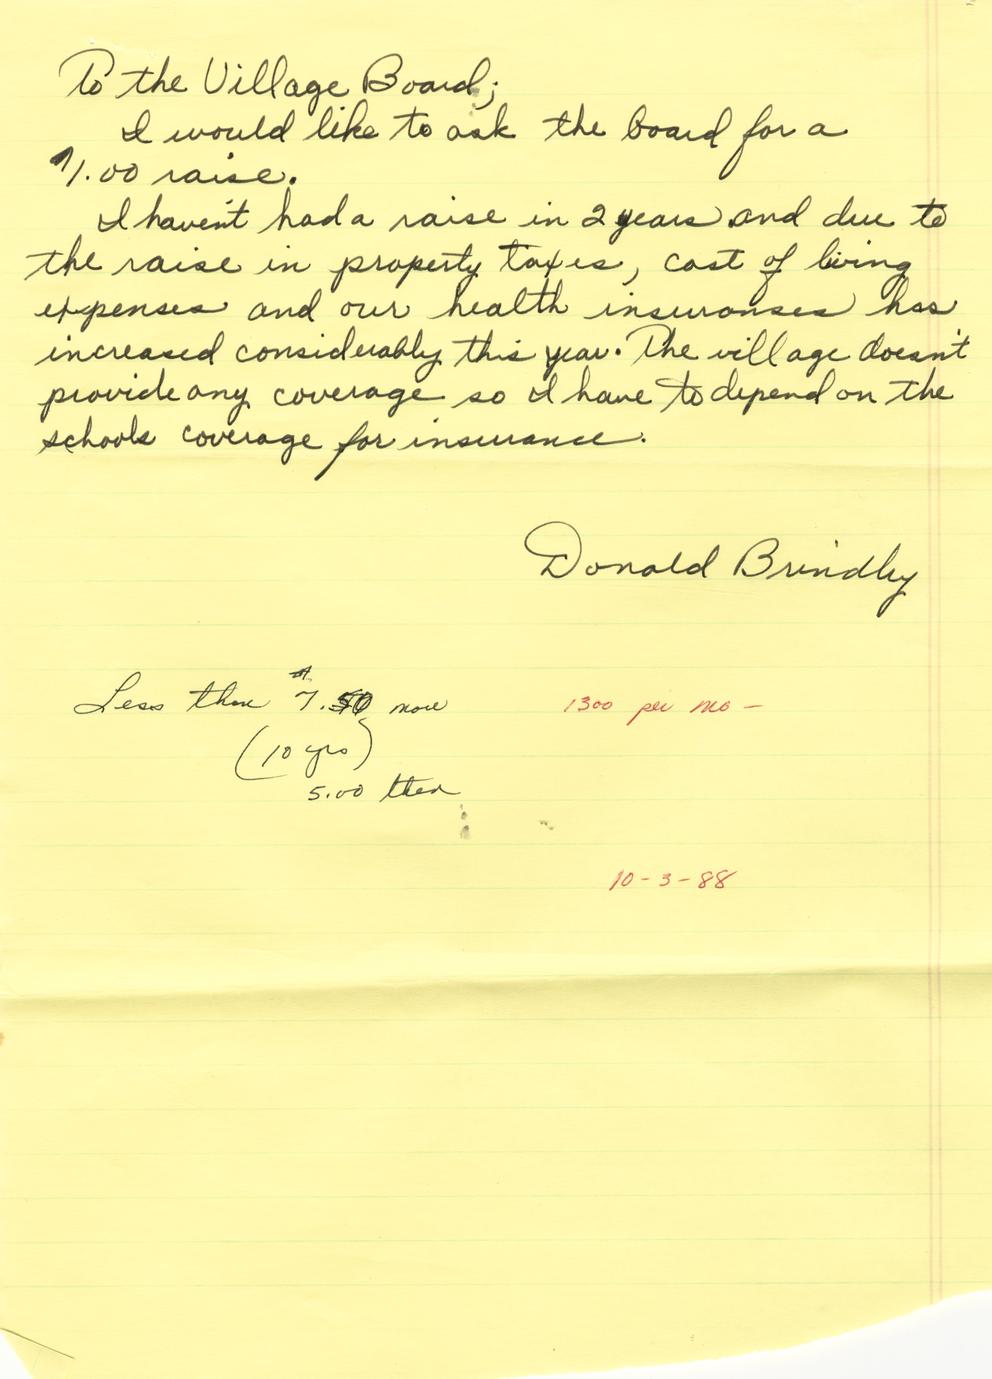 To the Village Board;
I would like to ask the board for a
$1.00 raise.
I haven't had a raise in 2 years and due to
the raise in property taxes, cost of living
expenses and our health insuranses has
increased considerably this year. The village doesn't
provide any coverage so I have to depend on the
schools coverage for insurance.
Donald Brindley
Less than 7.50 now
1300 per mo -
(10 yrs)
5.00 then
10-3-88